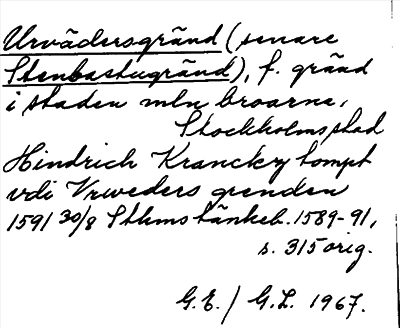 Urvädersgränd (senare
Stenbastugränd), f. gränd
i staden mln broarne,
Stockholms stad
Hindrich Krancky tompt
vdi Vrweders grenden
1591 30/8 Sthms tänkeb. 1589-91,
s. 315 orig.
G.E. / G.L. 1967.